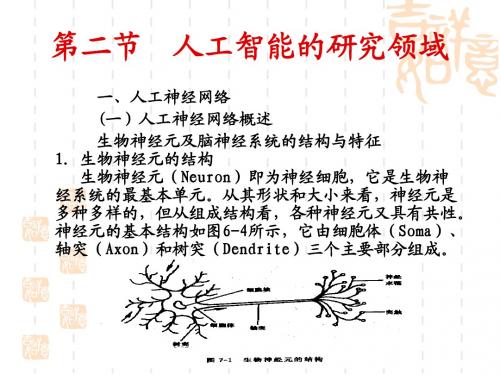 第二节 人工智能的研究领域
一、人工神经网络
(一) 人工神经网络概述
生物神经元及脑神经系统的结构与特征
1. 生物神经元的结构
生物神经元（Neuron）即为神经细胞，它是生物神
经系统的最基本单元。从其形状和大小来看，神经元是
多种多样的，但从组成结构看，各种神经元又具有共性。
神经元的基本结构如图6-4所示，它由细胞体（Soma）、
轴突（Axon）和树突（Dendrite）三个主要部分组成。
神经
末梢
细胞核
突触
细胞体
轴突
树突
图 7-1 生物神经元的结构